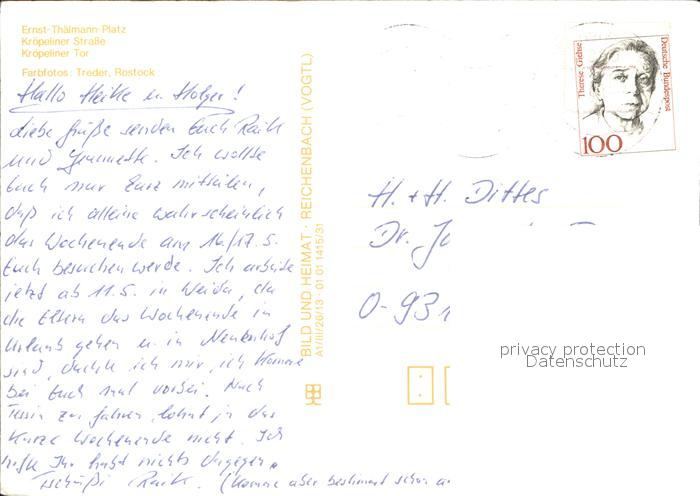 Ernst-Thälmann-Platz
Kröpeliner Straße
Kröpeliner Tor
Farbfotos: Treder, Rostock
Hallo Heike u. Holger!
Liebe Grüße senden Euch Raik
und Jeannette. Ich wollte
Euch nur kurz mitteilen,
daß ich alleine wahrscheinlich
das Wochenende am 16./17.5.
Euch besuchen werde. Ich arbeite
jetzt ab 11.5. in Weida, da
die Eltern das Wochenende in
Urlaub gehen u. in
sind, dachte ich mir, ich komme
bei Euch mal vorbei. Nach
Tessin zu fahren, lohnt ja das
kurze Wochenende nicht. Ich
hoffe Ihr habt nichts dagegen.
Tschüßi Raik. (Komme aber bestimmt schon a
BILD UND HEIMAT · REICHENBACH (VOGTL)
A1/III/26/13 · 01 01 1415/31
Therese Giehse
Deutsche Bundespost
100
H. + H. Dittes
Dr. Jo
O-931
privacy protection
Datenschutz